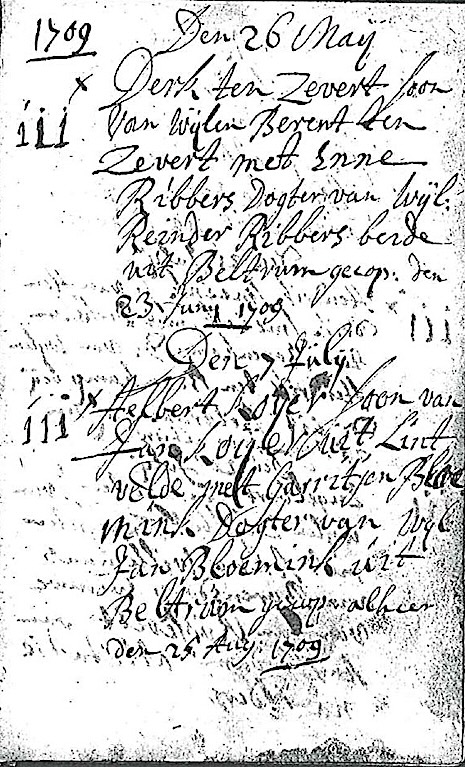 1709 Den 26 Maÿ
x Derk ten Zevert soon
iii van wijlen Berent ten
Zevert met Enne
Ribbers Dogter van wijl:
Reinder Ribbers beide
uit Beltrum gecop. den
23 Junÿ 1709
Den 7 July
iii x Helbert Koijer soon van
Jan Koijer uit Lint
velde met Garritjen Bloe
mink Dogter van wijl
Jan Bloemink uit
Beltrum gecop alhier
den 25 Aug. 1709